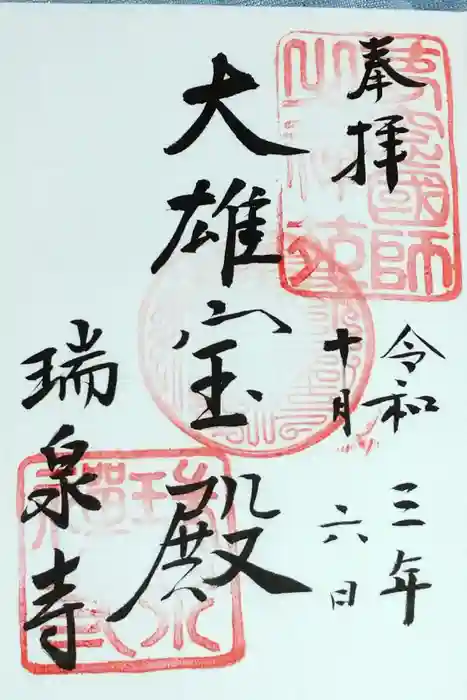 奉拝
令和三年
十月六日
大雄宝殿
瑞泉寺